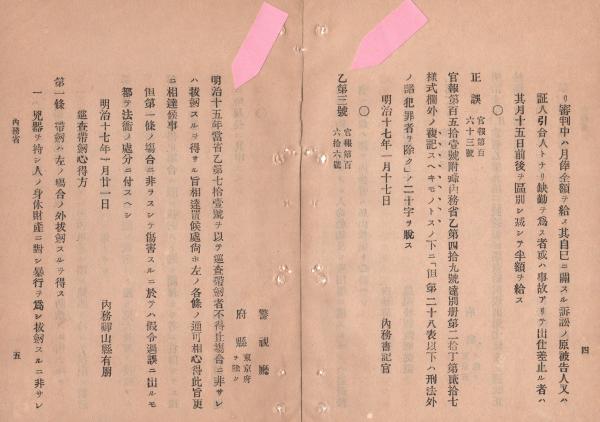 四
リ審問中ハ月俸全額ヲ給ス其自己ニ關スル訴訟ノ原被告人又ハ
証人引合人トナリ缺勤ヲ爲ス者或ハ事故アリテ出仕差止ル者ハ
其月十五日前後ヲ區別シ或シテ半額ヲ給ス
正誤 官報第百六十三號
官報第百五拾壹號附錄内務省乙第四拾九號達別册第二拾丁第貳拾七
樣式欄外ノ複記スヘキモノトスノ下ニ「但第二十八表以下ハ刑法外
ノ諸犯罪者ヲ除ク」ノ二十字ヲ脱ス
明治十七年一月十七日 内務書記官
〇
乙第三號 官報第百六拾六號
警視廳
府縣 東京府ヲ除ク
明治十五年當省乙第七拾壹號ヲ以テ巡査帶劔者不得止塲合ニ非サレ
ハ拔劔スルヲ得サル旨相達置候處尚ホ左ノ各條ノ通可相心得此旨更
ニ相達候事
但第一條ノ塲合ニ非ラスシテ傷害スルニ於テハ假令過誤ニ出ルモ
都テ法衙ノ處分ニ付スヘシ
明治十七年一月廿一日 内務卿山縣有朋
巡査帶劔心得方
第一條 帶劔ハ左ノ塲合ノ外拔劔スルヲ得ス
一 兇器ヲ持シ人ノ身体財產ニ對シ暴行ヲ爲シ拔劔スルニ非サレ
内務省
五